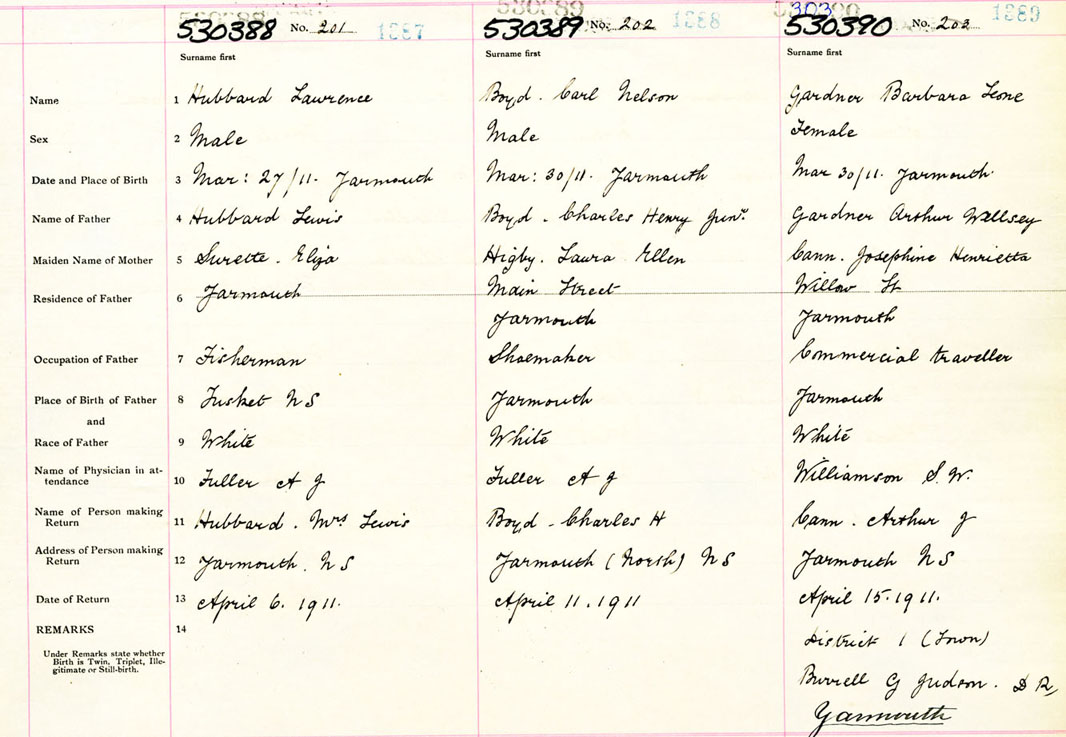 530388 No. 201 1387
530389 No. 202 1388
303
530390 No. 203 1389
Surname first
Surname first
Surname first
Name 1 Hubbard Lawrence
Boyd. Carl Nelson
Gardner Barbara Leone
Sex 2 Male
Male
Female
Date and Place of Birth 3 Mar: 27/11. Yarmouth
Mar: 30/11. Yarmouth
Mar 30/11. Yarmouth.
Name of Father 4 Hubbard Lewis
Boyd - Charles Henry Junr.
Gardner Arthur
Maiden Name of Mother 5 Surette. Eliza
Higby. Laura Ellen
Cann. Josephine Henrietta
Residence of Father 6 Yarmouth
Main Street
Yarmouth
Willow St
Yarmouth
Occupation of Father 7 Fisherman
Shoemaker
Commercial traveller
Place of Birth of Father 8 Tusket N S
Yarmouth
Yarmouth
and
Race of Father 9 White
White
White
Name of Physician in at-
tendance 10 Fuller A J
Fuller A J
Williamson S. W.
Name of Person making
Return 11 Hubbard. Mrs Lewis
Boyd - Charles H
Cann. Arthur J
Address of Person making
Return 12 Yarmouth. N S
Yarmouth (North) N S
Yarmouth N S
Date of Return 13 April 6. 1911.
April 11. 1911
April 15. 1911.
REMARKS 14
Under Remarks state whether
Birth is Twin, Triplet, Ille-
gitimate or Still-birth.
District 1 (Town)
Burrell G Judson. D R,
Yarmouth